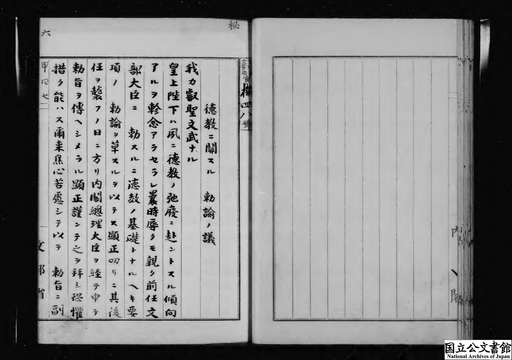 徳教ニ関スル 勅諭ノ議
我カ叡聖文武ナル
皇上陛下ハ夙ニ徳教ノ弛廃ニ赴ントスル傾向
アルヲ軫念アラセラレ曩時辱クモ親ク前任文
部大臣ニ 勅スルニ徳教ノ基礎トナルヘキ要
項ノ 勅諭ヲ草スルヲ以テス顕正叨リニ其後
任ヲ襲フノ日ニ方リ内閣総理大臣ヲ経テ申テ
勅旨ヲ傳ヘシメラル顕正謹ンテ之ヲ拜シ恐懼
措ク能ハス爾来焦心苦慮シテ以テ 勅旨ニ副
文部省
秘
六
国立公文書館
National Archives of Japan